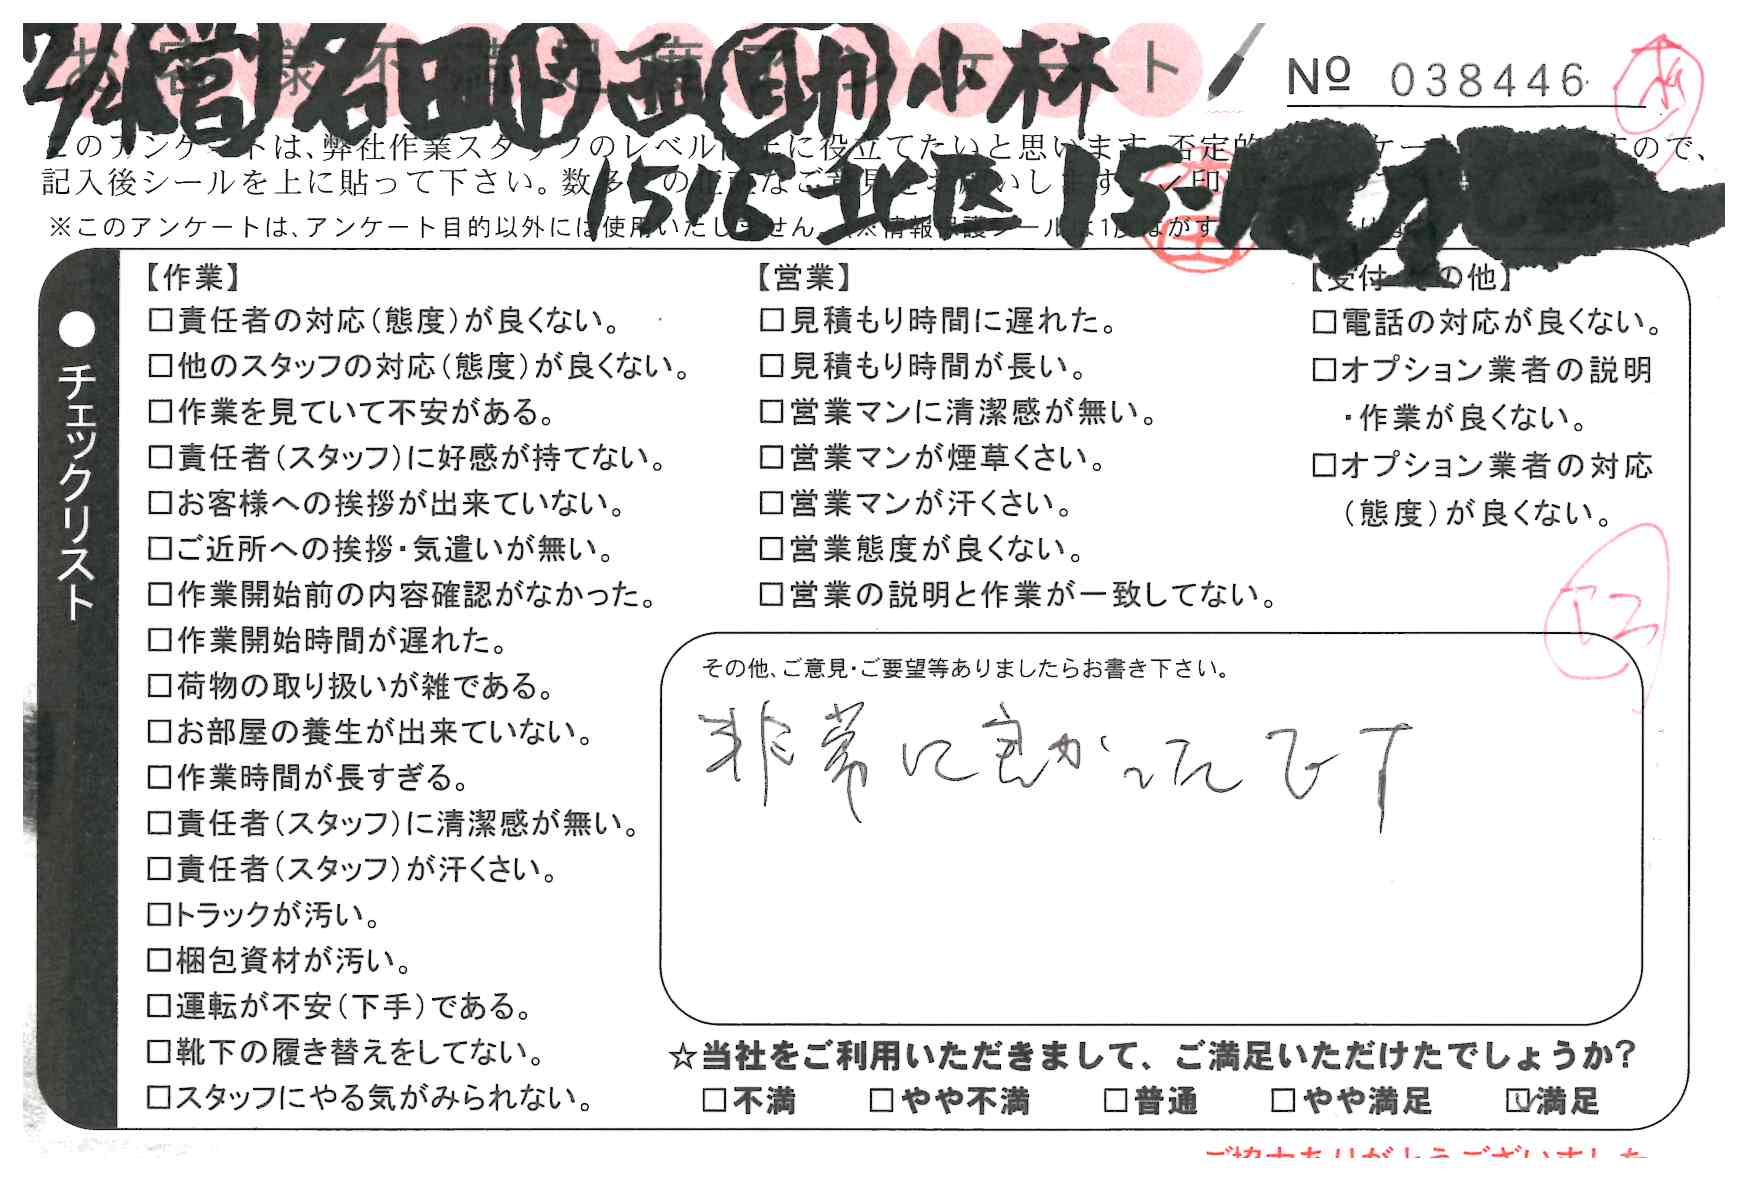 お客様不満足度アンケート
2/4 営 名田 ト 西 助 小林
№ 038446
このアンケートは、弊社作業スタッフのレベル向上に役立てたいと思います。否定的 ケー ので、
記入後シールを上に貼って下さい。数多くの正直なご意見をお願いします。
1508 北区 15-
※このアンケートは、アンケート目的以外には使用いたしません。(※情報保護シールは1度はがす
●チェックリスト
【作業】
□責任者の対応(態度)が良くない。
□他のスタッフの対応(態度)が良くない。
□作業を見ていて不安がある。
□責任者(スタッフ)に好感が持てない。
□お客様への挨拶が出来ていない。
□ご近所への挨拶・気遣いが無い。
□作業開始前の内容確認がなかった。
□作業開始時間が遅れた。
□荷物の取り扱いが雑である。
□お部屋の養生が出来ていない。
□作業時間が長すぎる。
□責任者(スタッフ)に清潔感が無い。
□責任者(スタッフ)が汗くさい。
□トラックが汚い。
□梱包資材が汚い。
□運転が不安(下手)である。
□靴下の履き替えをしてない。
□スタッフにやる気がみられない。
【営業】
□見積もり時間に遅れた。
□見積もり時間が長い。
□営業マンに清潔感が無い。
□営業マンが煙草くさい。
□営業マンが汗くさい。
□営業態度が良くない。
□営業の説明と作業が一致してない。
【受付・その他】
□電話の対応が良くない。
□オプション業者の説明
・作業が良くない。
□オプション業者の対応
(態度)が良くない。
その他、ご意見・ご要望等ありましたらお書き下さい。
非常に良かったです
☆当社をご利用いただきまして、ご満足いただけたでしょうか?
□不満 □やや不満 □普通 □やや満足 ☑満足
ご協力ありがとうございました